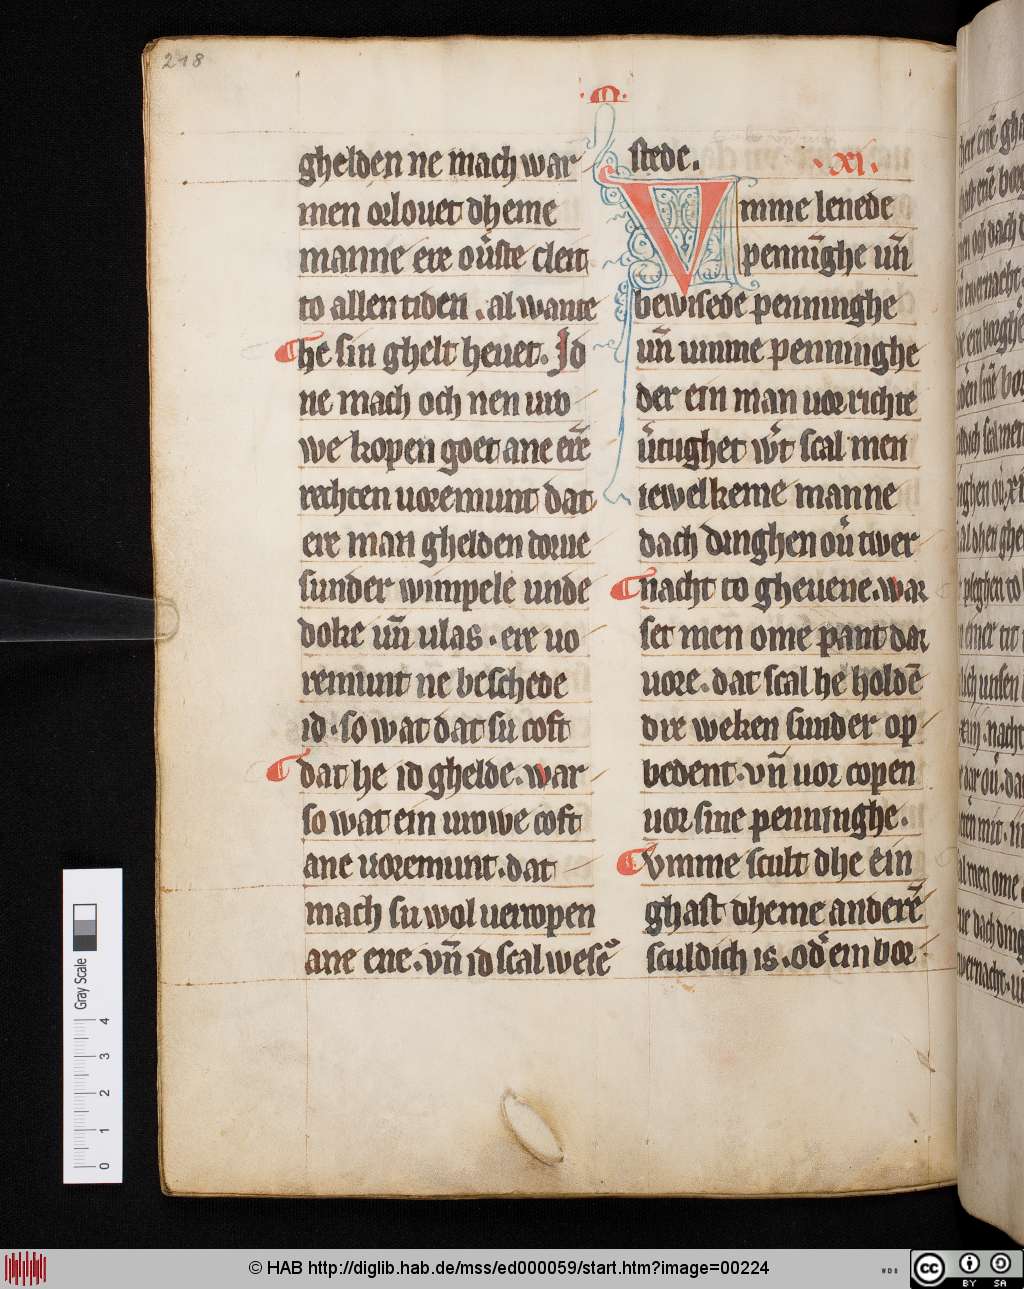 218
·m·
ghelden ne mach war
men orlouet dheme
manne ere ou̾ste cleit
to allen tiden . al wante
he sin ghelt heuet. Jd
ne mach och nen uro
we kopen goet ane ere̅
rechten uoremunt dat
ere man ghelden dorue
sunder wimpele unde
doke un̅ ulas . ere uo
remunt ne beschede
id . so wat dat su coft
dat he id ghelde. war
so wat ein urowe coft
ane uoremunt . dat
mach su wol uercopen
ane ene . vn̅ id scal wese̅
stede.
. xi .
Vmme lenede
penni̅ghe un̅
bewisede penninghe
un̅ umme penninghe
der ein man uorrichte
u̾tughet w̾t scal men
iewelkeme manne
dach dinghen ou̾ twer
nacht to gheuene. war
set men ome pant dar
uore. dat scal he holde̅
dre weken sunder op
bedent. vn̅ uor copen
uor sine penninghe.
vmme scult dhe ein
ghast dheme andere̅
sculdich is . od̾ ein bor
Gray Scale
4
3
2
1
0
© HAB http://diglib.hab.de/mss/ed000059/start.htm?image=00224
WDB
cc BY SA